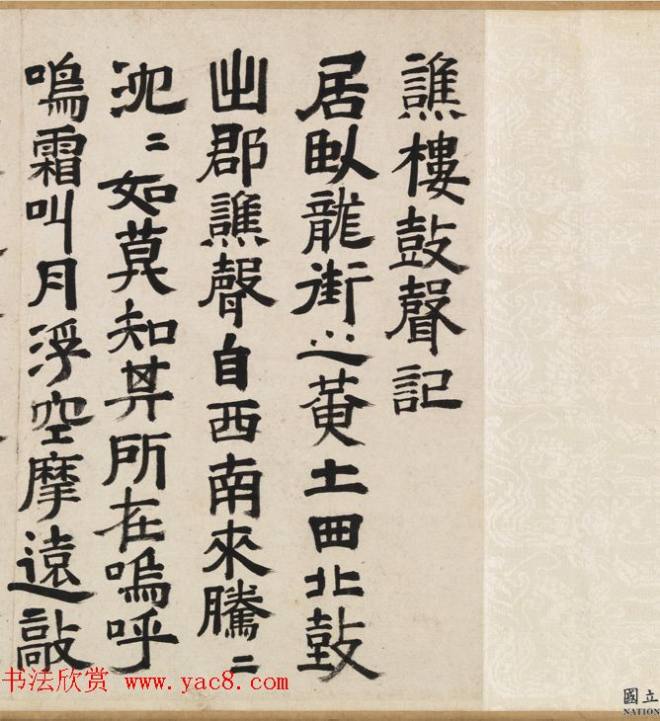 譙樓鼓聲記
居臥龍街之黃土曲北鼓
出郡譙聲自西南來騰〻
沈〻如莫知其所在嗚呼
鳴霜叫月浮空摩遠敲
书法欣赏 www.yac8.com
國立
NATION